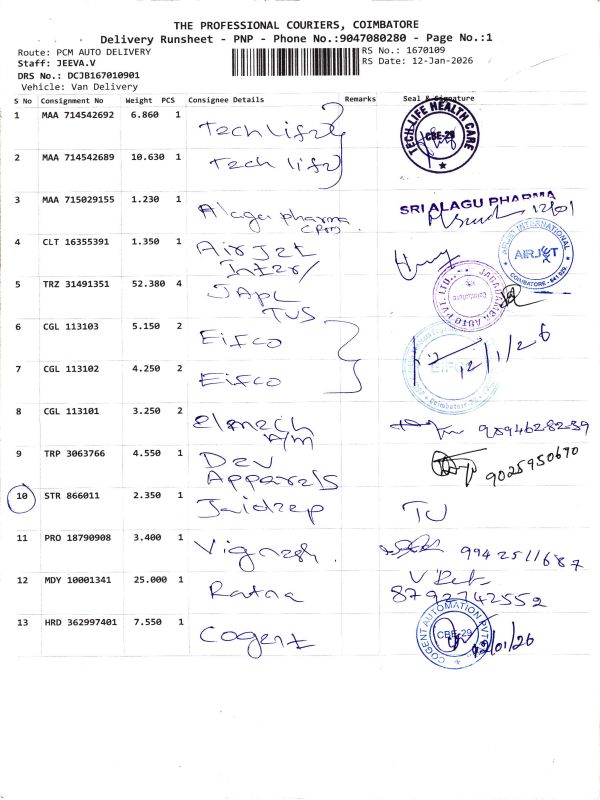 THE PROFESSIONAL COURIERS, COIMBATORE
Delivery Runsheet - PNP - Phone No.:9047080280 - Page No.:1
Route: PCM AUTO DELIVERY
RS No.: 1670109
Staff: JEEVA.V
RS Date: 12-Jan-2026
DRS No.: DCJB167010901
Vehicle: Van Delivery
S No Consignment No Weight PCS Consignee Details Remarks Seal & Signature
1 MAA 714542692 6.860 1 Tech life
TECH-LIFE HEALTH CARE CBE-29
2 MAA 714542689 10.630 1 Tech life
3 MAA 715029155 1.230 1 Alagu pharma
SRI ALAGU PHARMA
12/01
4 CLT 16355391 1.350 1 Airjet
Inter/
AIRJET INTERNATIONAL AIRJET COIMBATORE
5 TRZ 31491351 52.380 4 JApL
TVS
6 CGL 113103 5.150 2 Eifco
12/1/26
7 CGL 113102 4.250 2 Eifco
EIFCO Coimbatore
8 CGL 113101 3.250 2 elmech
A/M
9894628239
9 TRP 3063766 4.550 1 Dev
Apparels
9025950670
10 STR 866011 2.350 1 Jaideep
11 PRO 18790908 3.400 1 Vignesh.
9942511687
12 MDY 10001341 25.000 1 Ratna
8792742552
13 HRD 362997401 7.550 1 Cogent
COGENT AUTOMATION PVT CBE-29
12/01/26